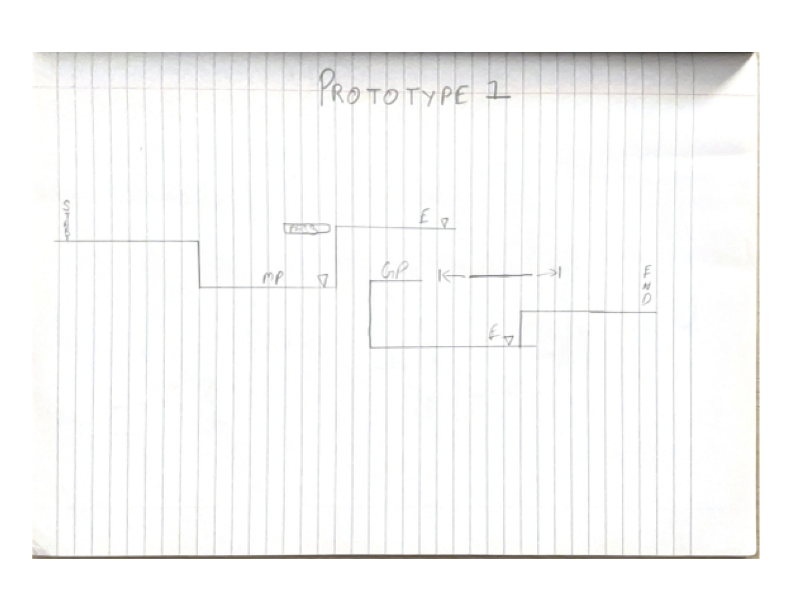 PROTOTYPE 1
START
E
MP
GP
END
E